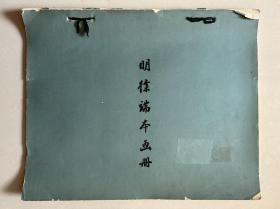 明徐端本画册